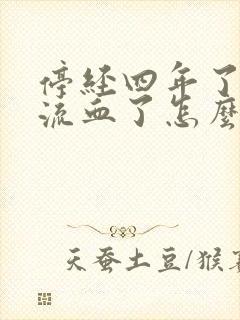 停经四年了
流血了怎麽
天蚕土豆/猴